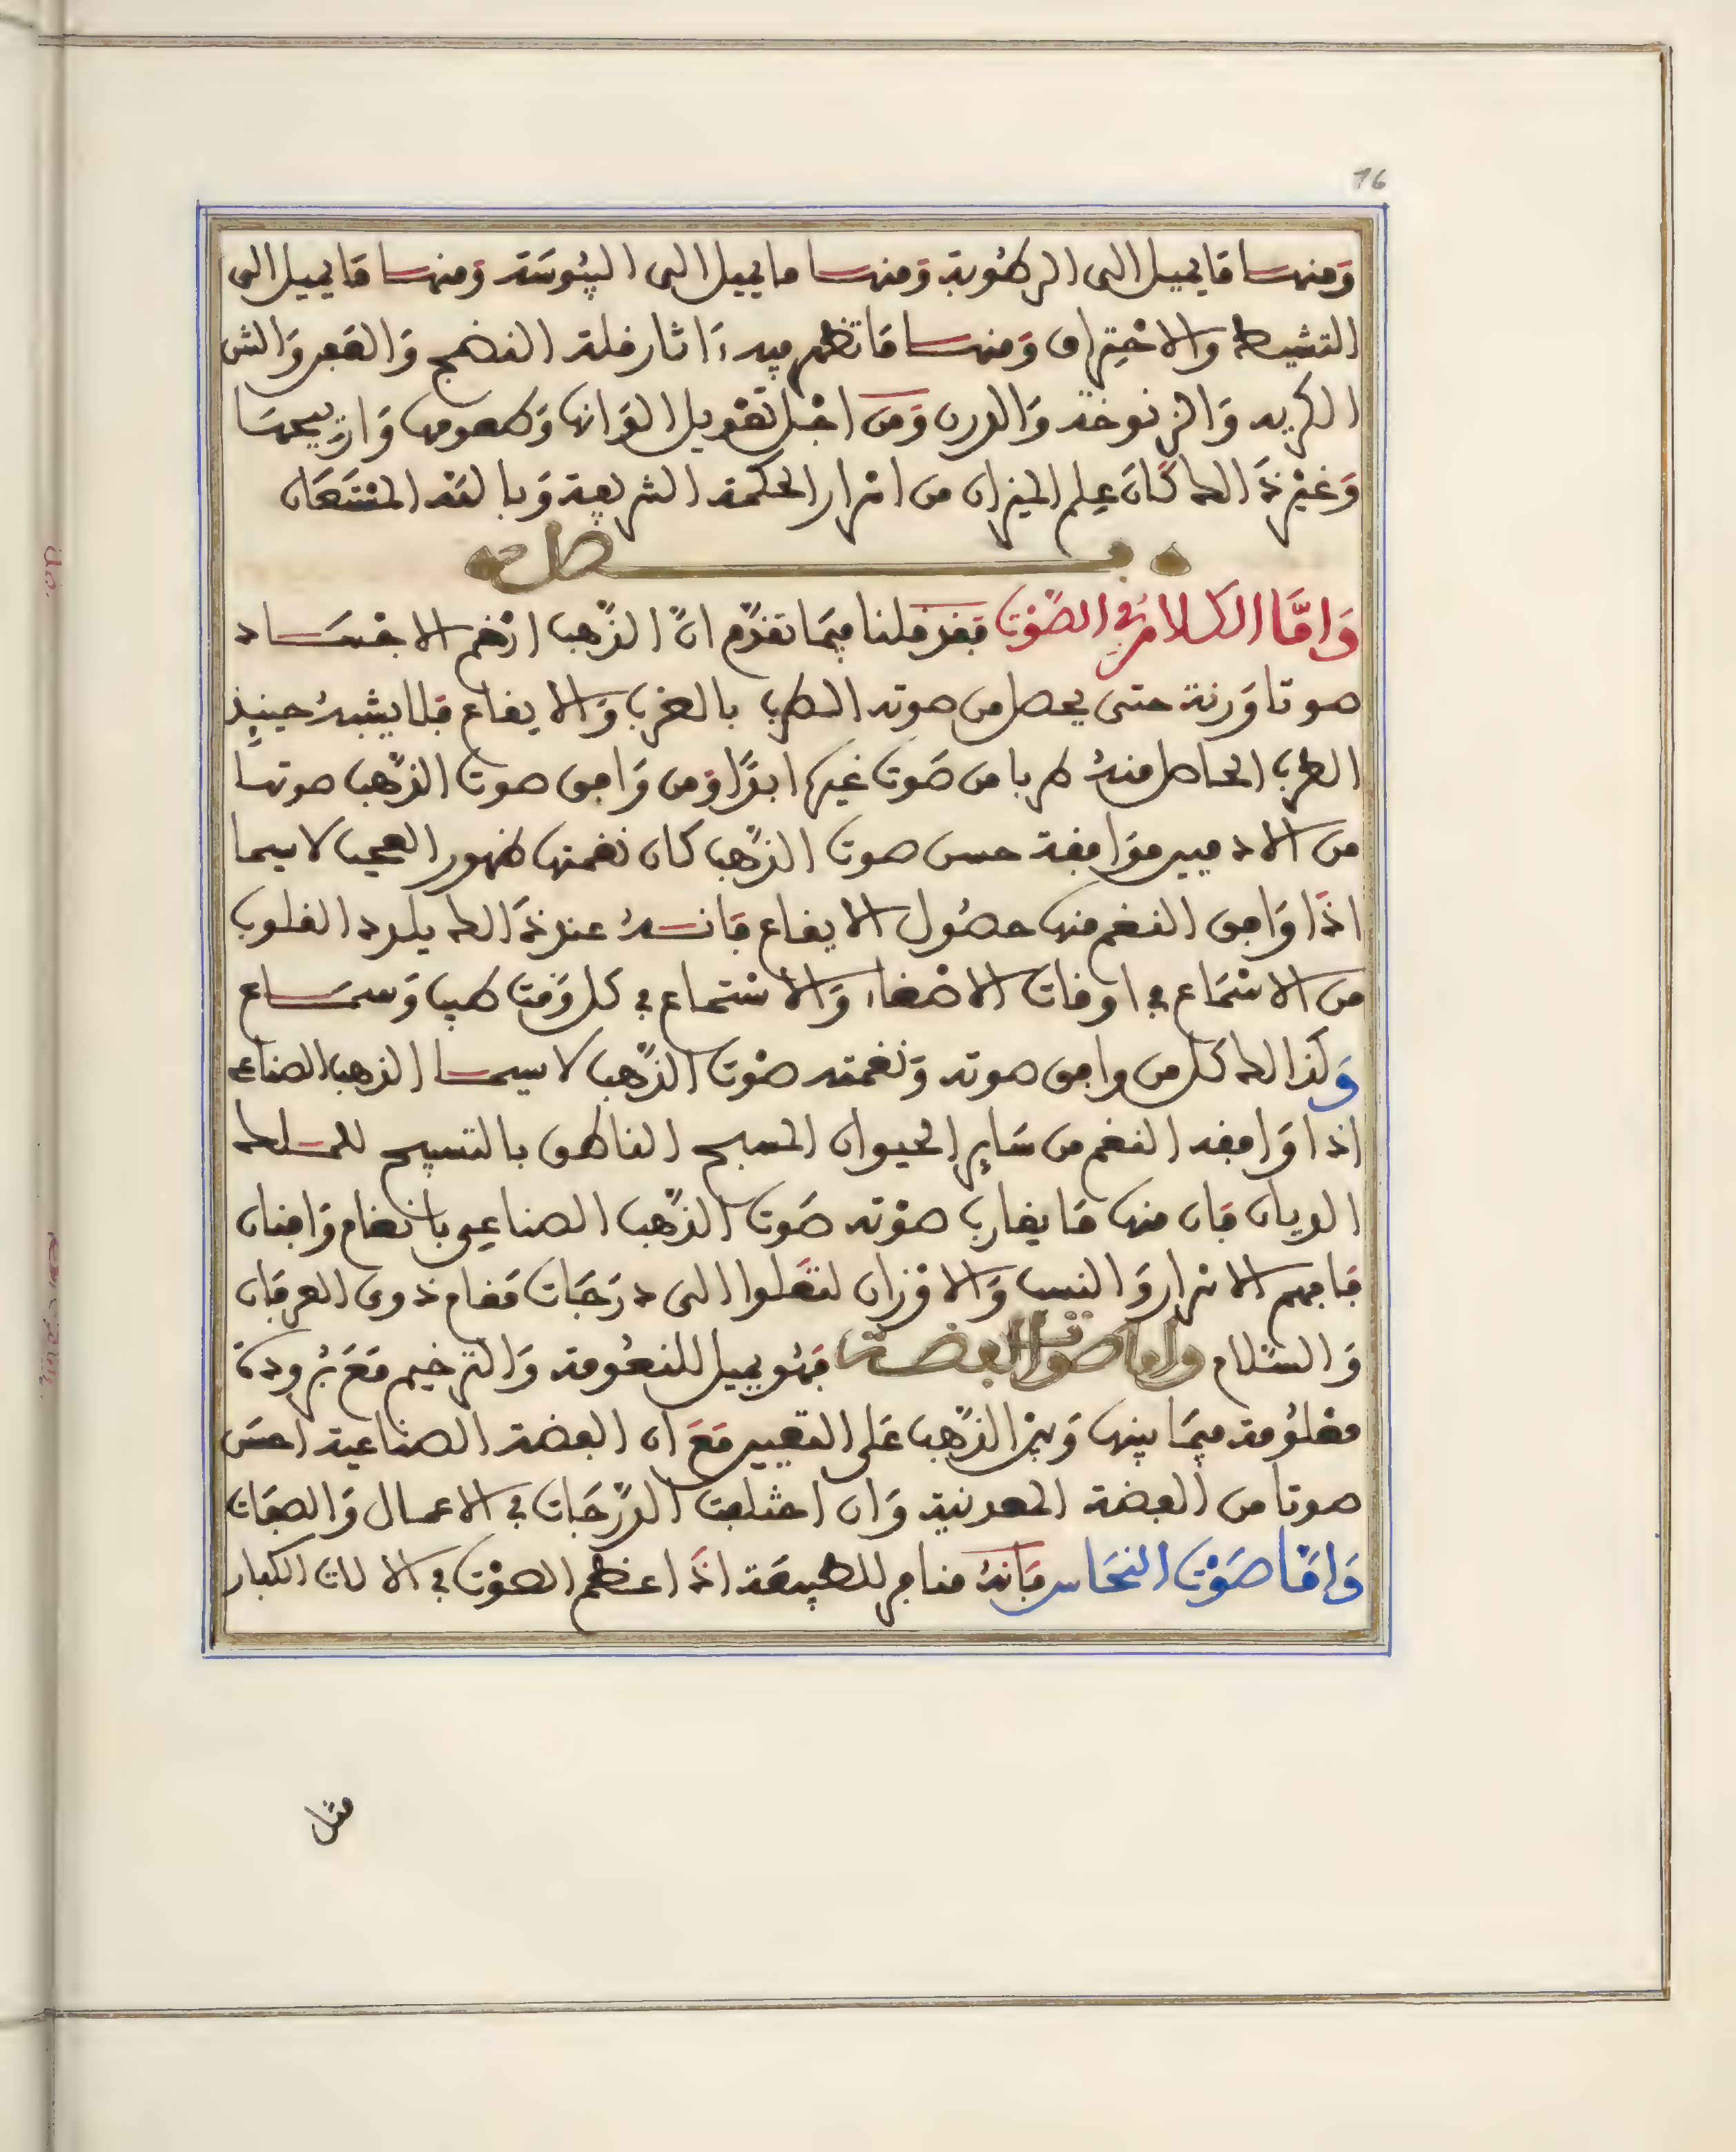 16
وَمنهـا مَا يميل الى الرطُوبة وَمنهـا ما يميل الى اليبُوسَة وَمنهـا مَا يميل الى
التشيط والاحْتِراق وَمنهـا مَا تظهر فيه ءَاثار قلة النضج وَالقعر وَالنتن
الكريه وَالزنوخة وَالدرن وَمن اجْل تعْويل الوَانها وَطعومها وَارَايحهَا
وَغيْر ذَالك كَانَ عِلم الميزان من اسْرار الحكمة الشريعة وَبالله المسْتَعَان
فـصل
وَامَّا الكلام في الصَّوْت فقد قلنا فيمَا تقدَّم انَّ الذَّهب ارْخم الاجْسَـاد
صوتا وَرنة حتى يحصل من صوته الطرب بالضرب وَالايقاع فلا يشبهُ حينيذٍ
الطرب الحاصل منهُ طربا من صَوت غيرها ابدًا وَمن وَافق صوت الذَّهب صوتها
من الادميين موَافقة حسن صوت الذَّهب كان نغمتها ظهور العجب لاسيما
اذَا وَافق النغم منها حصُول الايقاع فَانـهُ عند ذَالك يلرد القلوب
من الاسْتمَاع في اوقات الاصْغاء وَالاسْتماع في كل وَقت طيب وَسمَـاع
وَكذالك كل من وافق صوته وَنغمته صَوْت الذَّهب لاسيمـا الذهب الصناعے
اذا وَافقه النغم من سَاير الحيوان المسبح الناطق بالتسبيح للمـلك
الديان فَان منها مَا يقارب صوْته صَوت الذَّهب الصناعيى بانغام وَافنان
فافهم الاسْرار وَالنسب وَالاوْزان لتعَلوا الى درَجَات مَقام ذوى العرفَان
وَالسَّلام واما صوت الفضـة فهُو يميل للنعُومة وَالترخيم مَعَ بُرودة
معْلوُمة فيمَا بينها وَبيْن الذَّهب عَلى التعيير مَعَ ان الفضة الصناعية احسَن
صوتا من الفضة المعدنية وَان اختلفت الدَّرَجَات في الاعمال وَالصفَات
وَامَّا صَوْت النحَاس فَانهُ منافر للطبيعَة اذَا عظم الصوْت في الالات الكبار
مثل